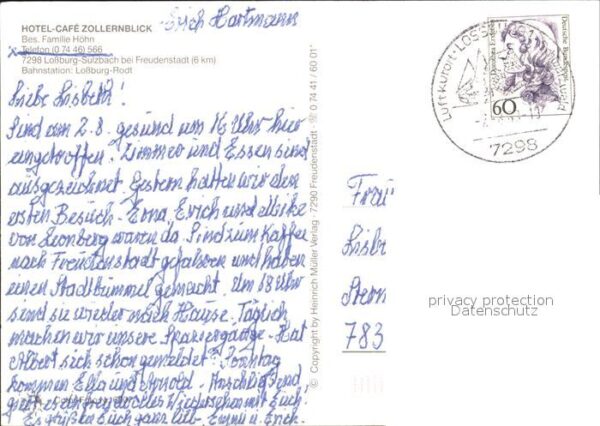 Erich Hartmann
HOTEL-CAFÉ ZOLLERNBLICK
Bes. Familie Höhn
x Telefon (0 74 46) 566
7298 Loßburg-Sulzbach bei Freudenstadt (6 km)
Bahnstation: Loßburg-Rodt
Liebe Lisbeth!
Sind am 2.8. gesund um 16 Uhr hier
eingetroffen. Zimmer und Essen sind
ausgezeichnet. Gestern hatten wir den
ersten Besuch. Erna, Erich und Ulrike
von Leonberg waren da. Sind zum Kaffee
nach Freudenstadt gefahren und haben
einen Stadtbummel gemacht. Um 18 Uhr
sind sie wieder nach Hause. Täglich
machen wir unsere Spaziergänge. Hat
Albert sich schon gemeldet? Sonntag
kommen Ella und Arnold. Anschließend
gibt es ein freudvolles Wiedersehen mit Euch!
Es grüßen Euch ganz lieb Emmi u. Erich.
© Copyright by Heinrich Müller Verlag · 7290 Freudenstadt · ☎ 0 74 41 / 60 01*
Luftkurort · LOSSBURG 1
7298
60
Deutsche Bundespost
Frau
Lisbe
Stern
783
privacy protection
Datenschutz